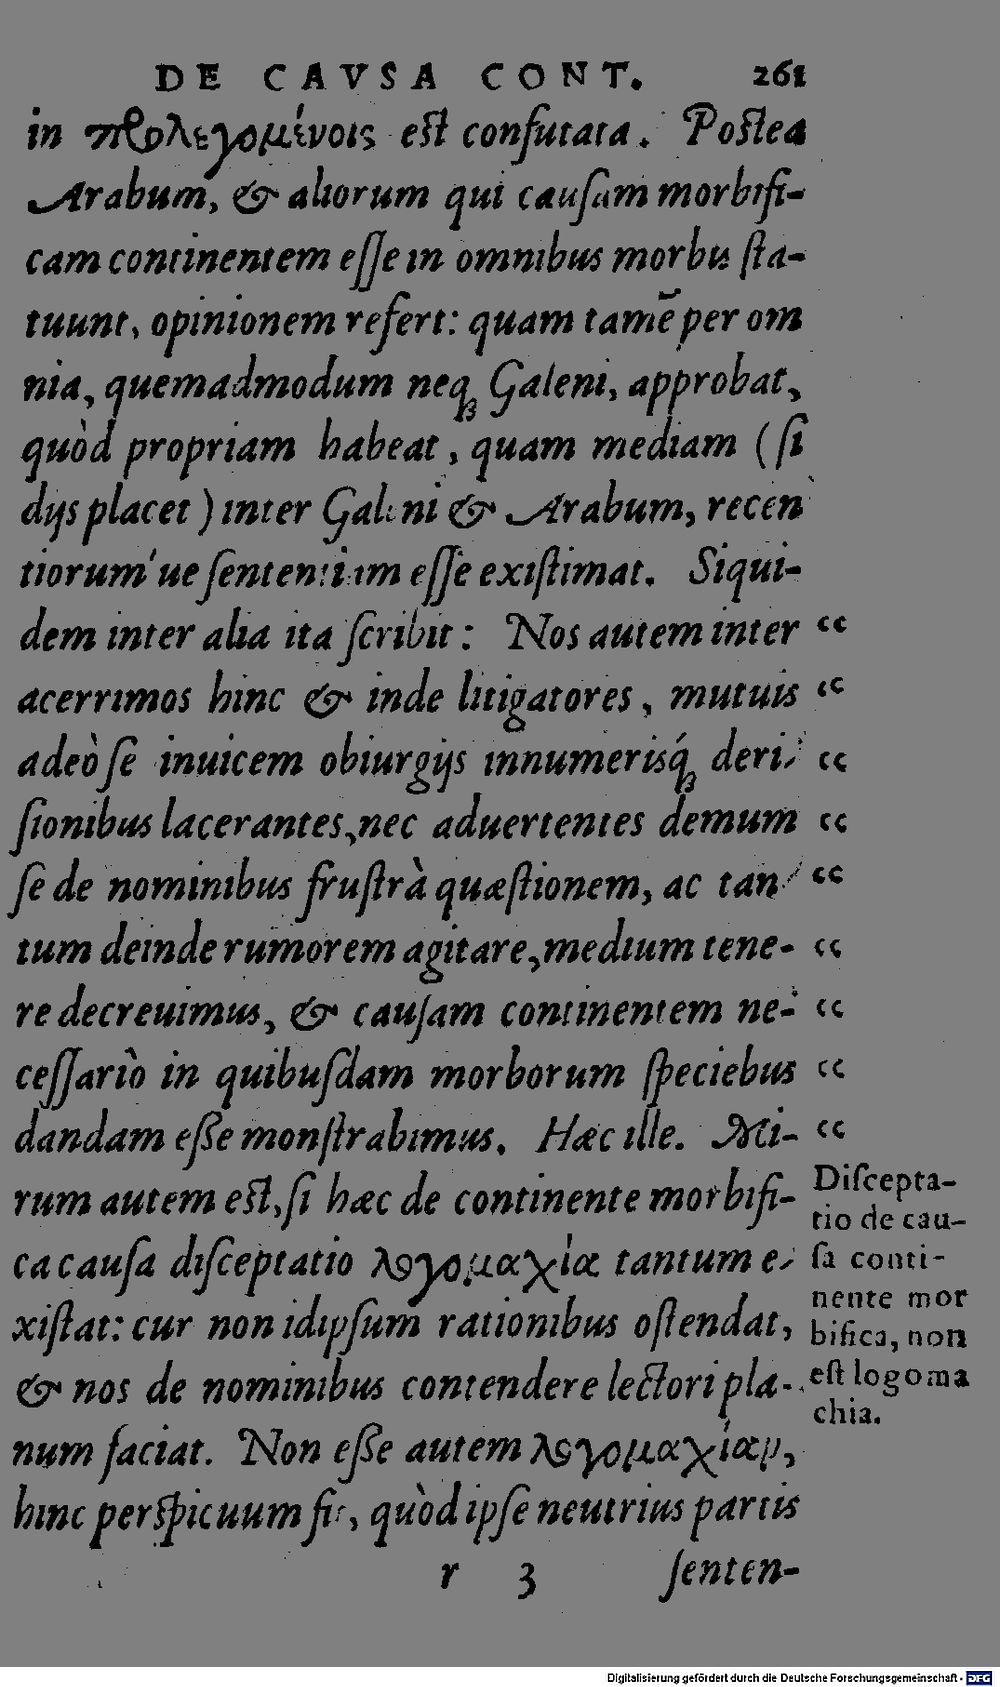 DE CAVSA CONT. 261
in προλεγομένοις est confutata. Postea
Arabum, & aliorum qui causam morbifi-
cam continentem esse in omnibus morbis sta-
tuunt, opinionem refert: quam tamē per om
nia, quemadmodum neqꝫ Galeni, approbat,
quòd propriam habeat, quam mediam (si
dijs placet) inter Galeni & Arabum, recen
tiorum've sententiam esse existimat. Siqui-
dem inter alia ita scribit: Nos autem inter “
acerrimos hinc & inde litigatores, mutuis “
adeò se inuicem obiurgijs innumerisq́ꝫ deri- “
sionibus lacerantes, nec aduertentes demum “
se de nominibus frustrà quæstionem, ac tan- “
tum deinde rumorem agitare, medium tene- “
re decreuimus, & causam continentem ne- “
cessariò in quibusdam morborum speciebus “
dandam esse monstrabimus. Hæc ille. Mi- “
rum autem est, si hæc de continente morbifi-
ca causa disceptatio λογομαχία tantum e-
xistat: cur non idipsum rationibus ostendat,
& nos de nominibus contendere lectori pla-
num faciat. Non esse autem λογομαχίαν,
hinc perspicuum fit, quòd ipse neutrius partis
r 3 senten-
Discepta-
tio de cau-
sa conti-
nente mor
bifica, non
est logoma
chia.
Digitalisierung gefördert durch die Deutsche Forschungsgemeinschaft - DFG